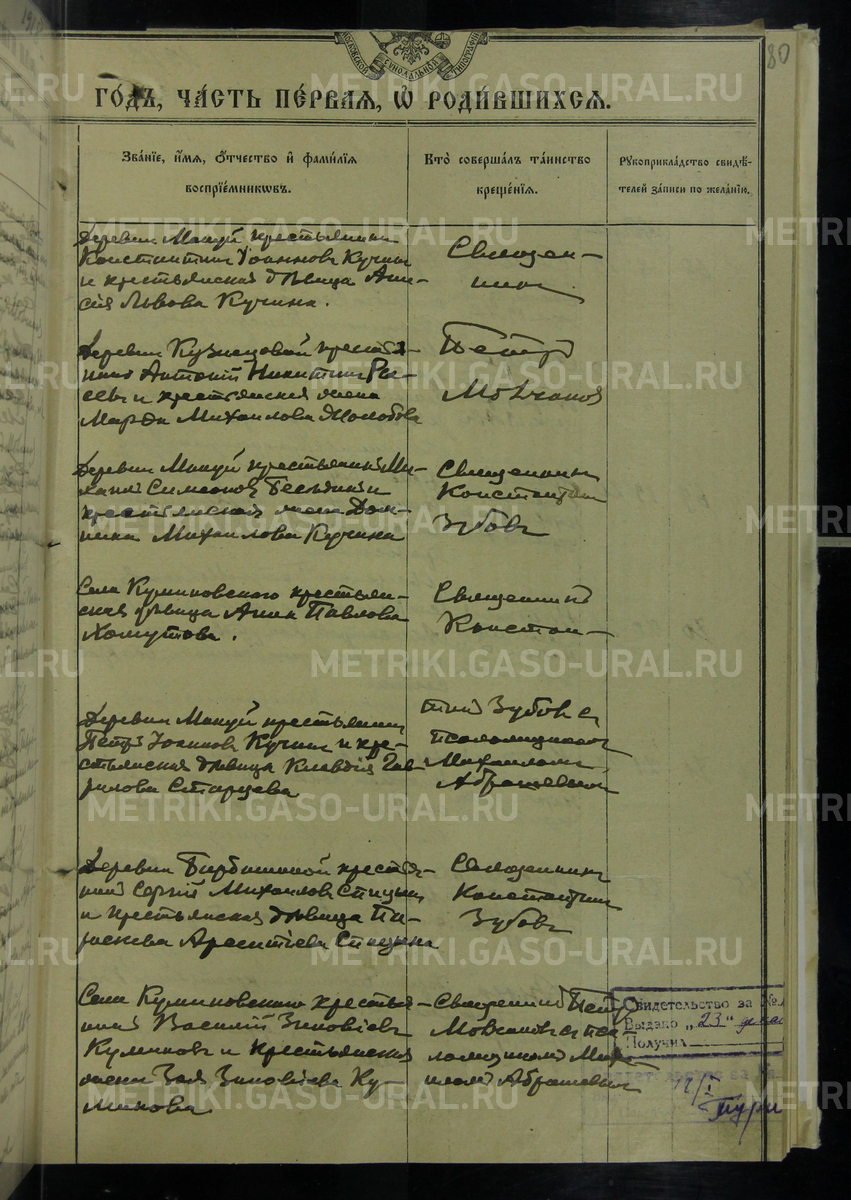 80
МОСКОВСКОЙ СѴНОДАЛЬНОЙ ТИПОГРАФІИ
ГО́ДЪ, ЧА́СТЬ ПЕ́РВАѦ, Ѡ҆ РОДИ́ВШИХСѦ.
Зва́нїе, и҆́мѧ, ѻ҆́тчество и҆ фами́лїѧ
воспрїе́мникѡвъ.
Кто̀ соверша́лъ та́инство
креще́нїѧ.
Рꙋкоприкла́дство свидѣ́-
телей за́писи по жела́нїю.
Деревни Мануй крестьянин
Константин Іоаннов Кучин
и крестьянская дѣвица Ани-
сія Львова Кучина.
Священ-
ник
Деревни Кузнецовой крестья-
нинъ Антоній Никитин
и крестьянская жена
Марѳа Михаилова
Петръ
Мовчанов
Деревни Мануй крестьянинъ Ми-
хаилъ Симеоновъ и
крестьянская жена Дом-
ника Михаилова Кучина
Священникъ
Константин
Зубовъ
Села Куминовского крестьян-
ская дѣвица Анна Павлова
Хомутова.
Священникъ
Констан-
Деревни Мануй крестьянин
Петръ Іоаннов Кучин и кре-
стьянская дѣвица Клавдія Гав-
рилова Старцева
тинъ Зубовъ съ
псаломщиком
Михаилом
Абрашевич
Деревни Бирбишиной крестья-
нинъ Сергій Михаиловъ Спицын
и крестьянская дѣвица Па-
раскева Спицина
Священникъ
Константин
Зубовъ
Села Куминовского крестья-
нинъ Василій Зиновіевъ
Куминовъ и крестьянская
жена Зоя Зиновіева Ку-
минова
Священникъ Петръ
Мовчановъ съ пса-
ломщикомъ Миха-
иломъ Абрашевич
Свидетельство за №
Выдано „23“ дека
Получил
12/I
Тури
METRIKI.GASO-URAL.RU